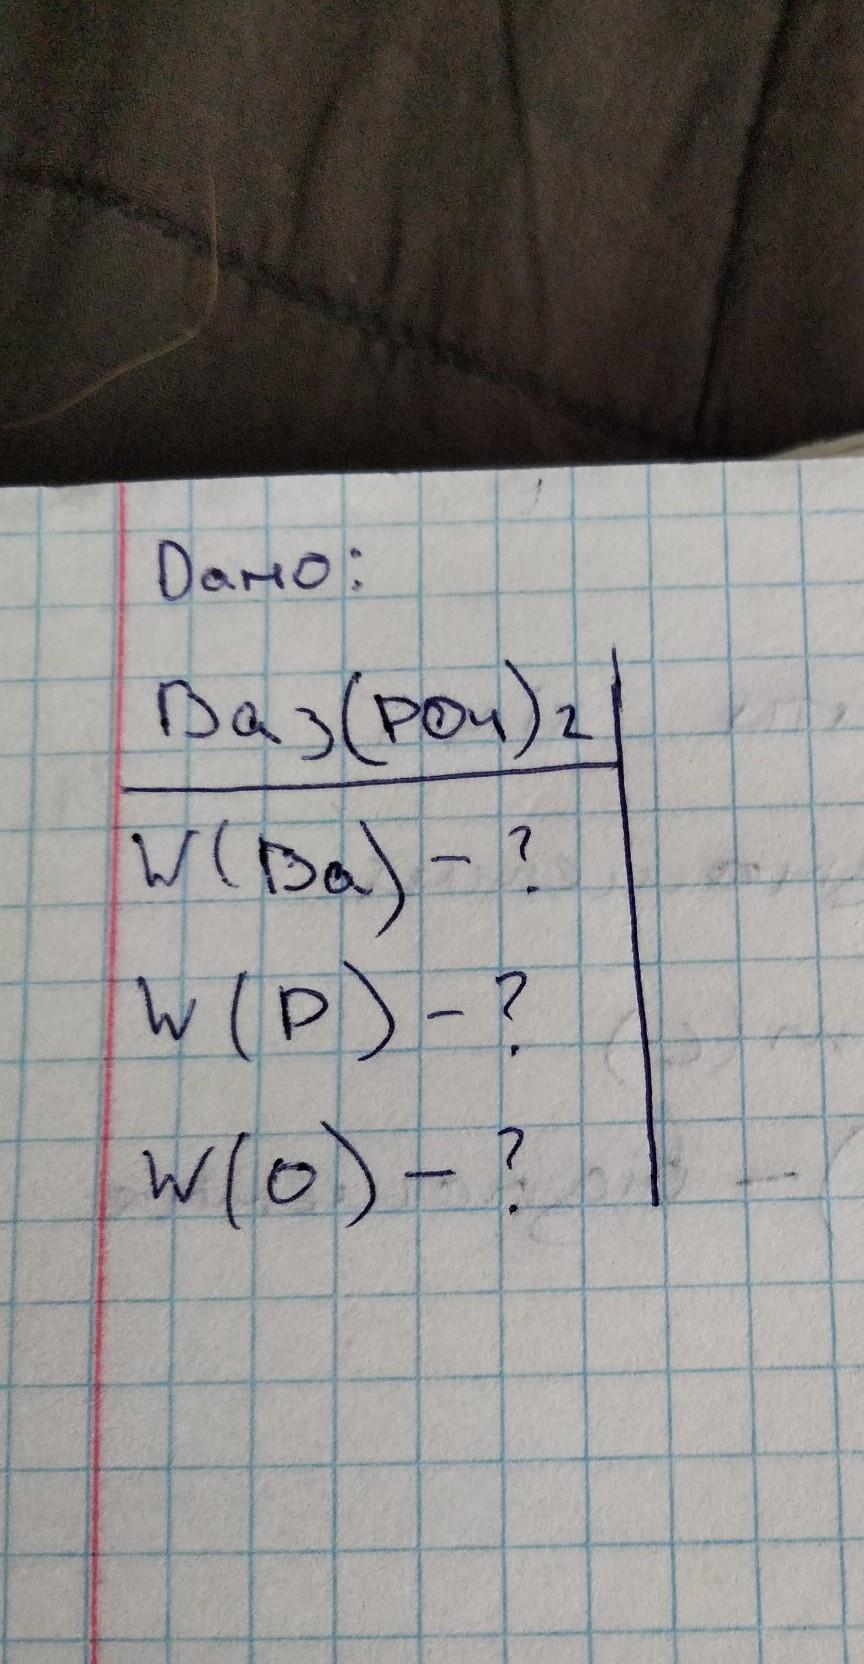 Дано:
Ba3(PO4)2
W(Ba) - ?
W(P) - ?
W(O) - ?